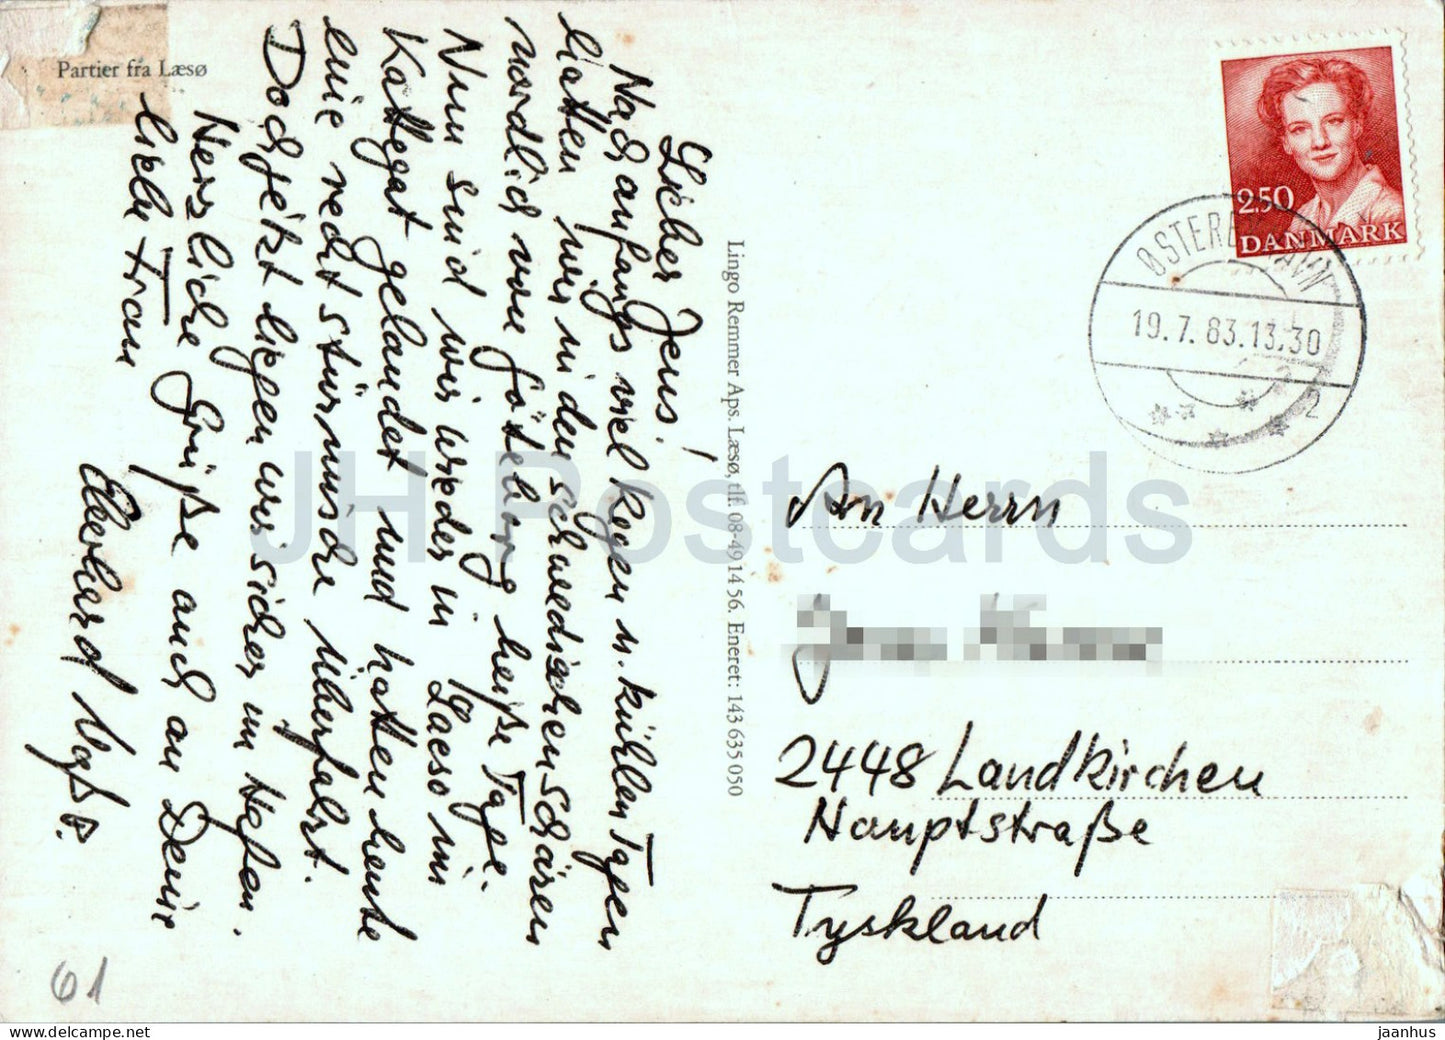 Partier fra Læsø
Lieber Jens!
Nach anfangs viel Regen u. kühlen Tagen
hatten wir in den schwedischen Schären
nördlich von Göteborg heiße Tage.
Nun sind wir wieder in Laeso im
Kattegat gelandet und hatten heute
eine recht stürmische Überfahrt.
Doch jetzt liegen wir sicher im Hafen.
Herzliche Grüße auch an Deine
liebe Frau
Eberhard
Lingo Remmer Aps. Læsø, tlf. 08-49 14 56. Eneret: 143 635 050
2.50
DANMARK
ØSTERBY HAVN
19.7.83.13.30
2
An Herrn
2448 Landkirchen
Hauptstraße
Tyskland
61
JH Postcards
jaanhus